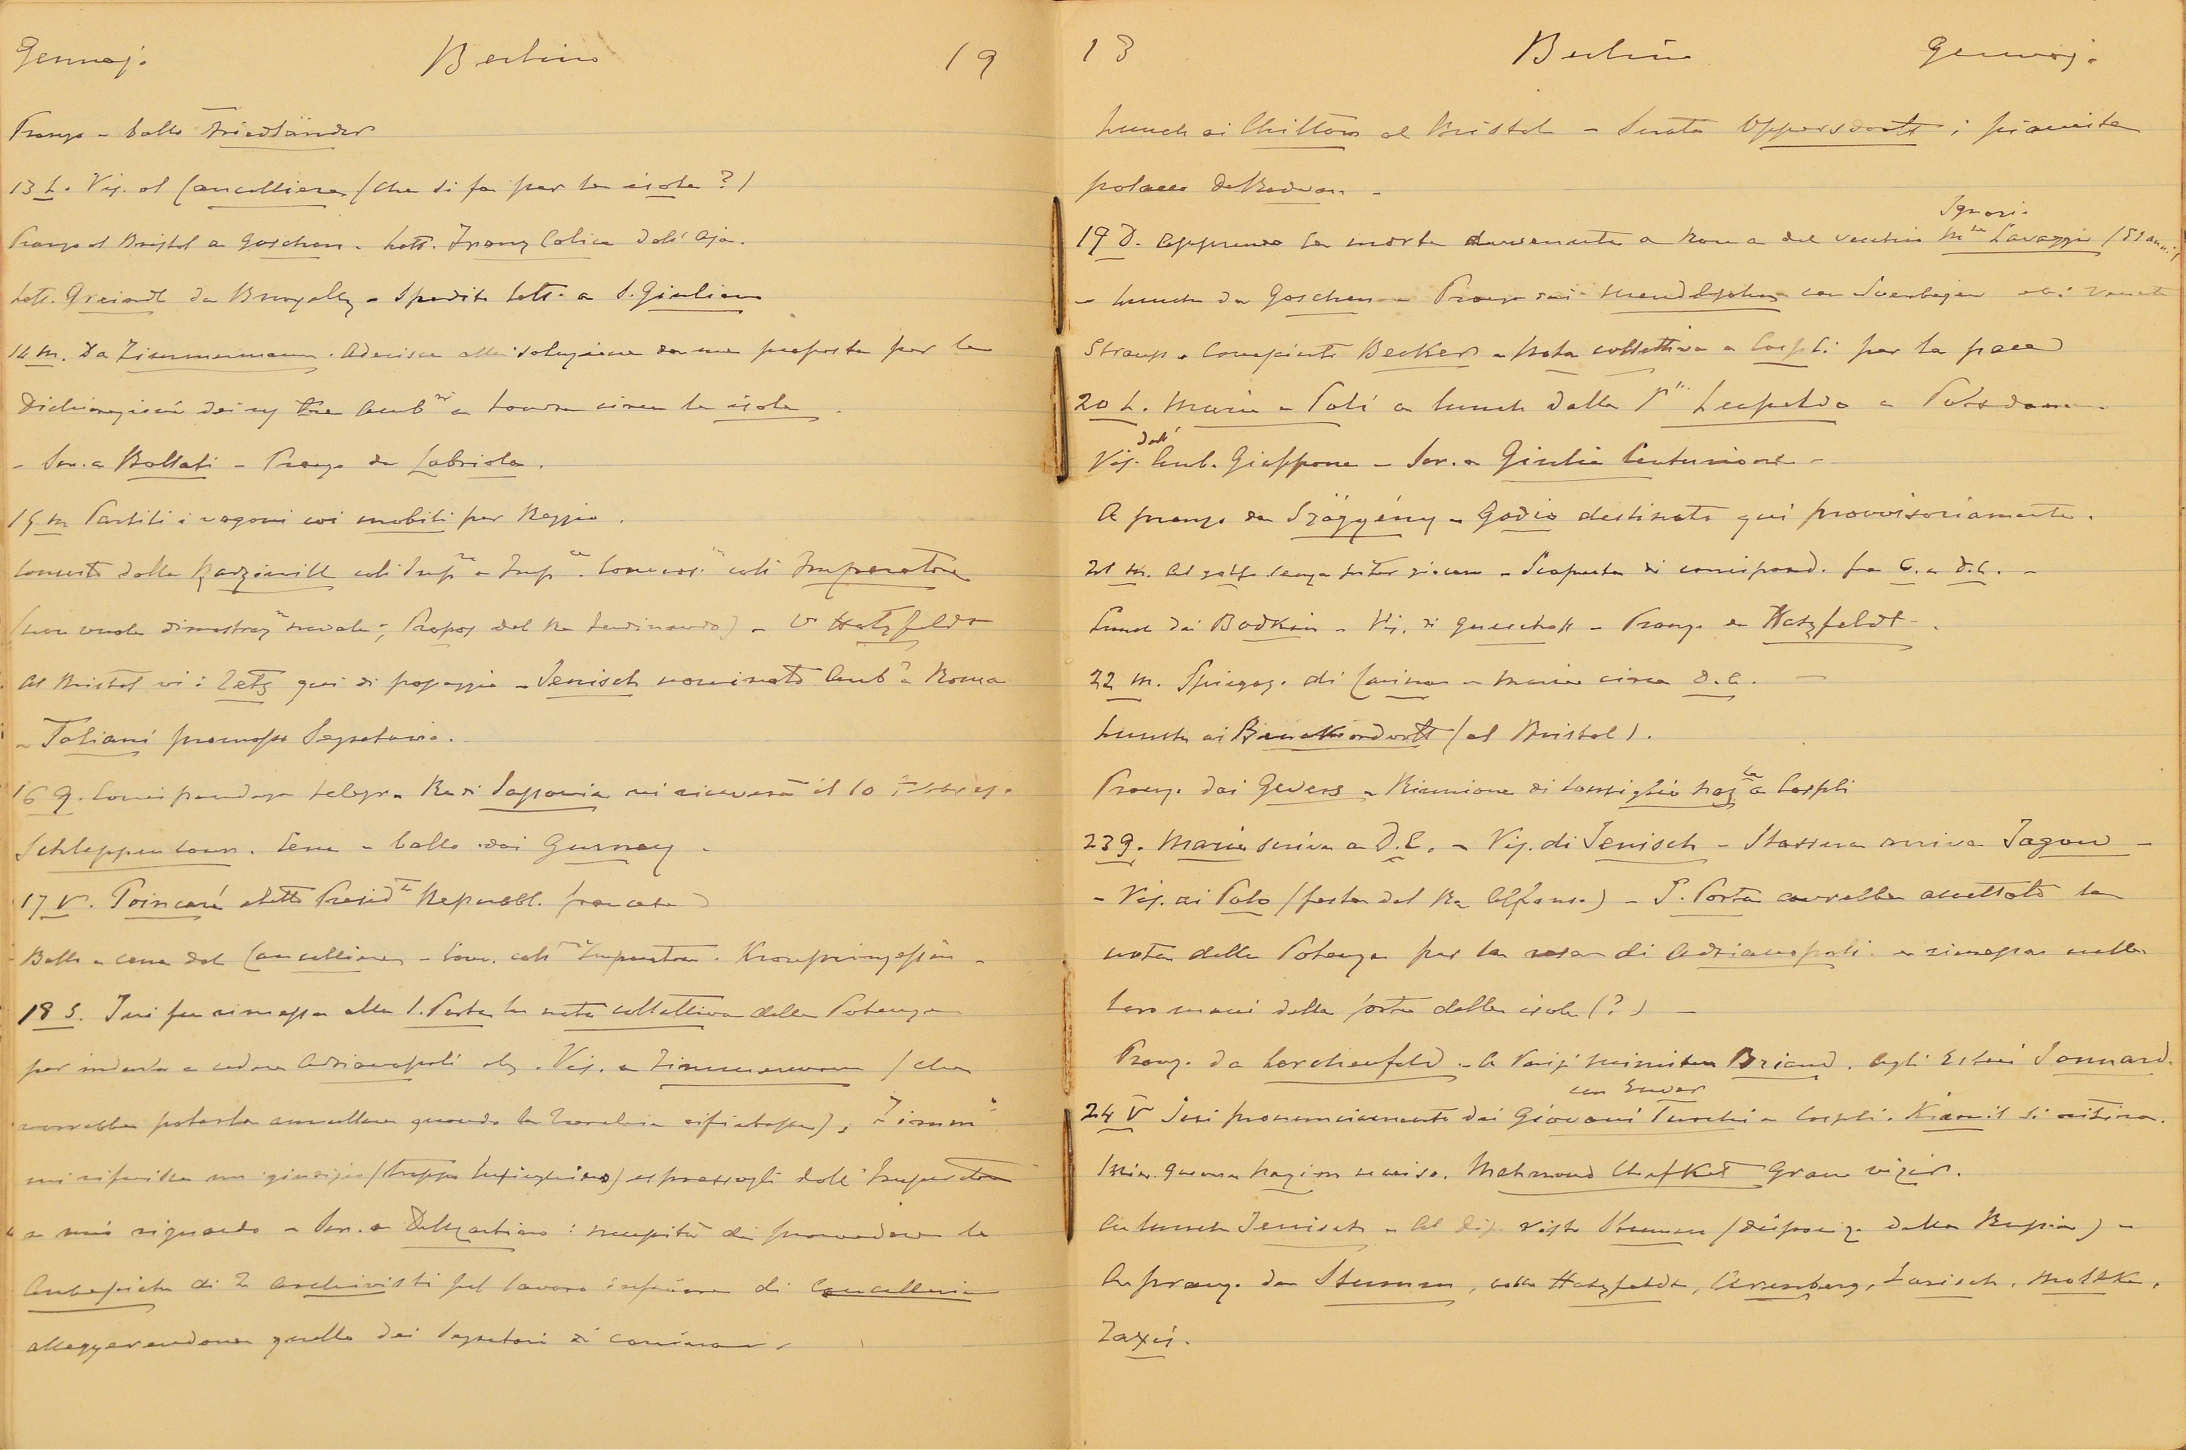 Gennaj. Berlino 19
Pranzo - ballo Friedländer
13 L. Vis. al Cancelliere (che si fa per le isole?)
Pranzo al Bristol a Goschen. Lett. Franz Colica dall'Aja.
Lett. Greindl da Bruxelles - Spedita lett. a S. Giuliano
14 M. Da Zimmermann. Aderisce alla soluzione da me proposta per la
Dichiarazione dei Amb.ri a Londra circa le isole.
- Scr. a Bollati - Pranzo da Labriola.
15 M Partiti i vagoni coi mobili per Reggio.
Concerto dalla Radziwill coll'Imp.re e Imp.ce. Convers. coll'Imperatore
(non vuole dimostraz.ne navale; Propos. del Re Ferdinando) - V. Hatzfeldt
Al Bristol vi è Zetz qui di passaggio - Jenisch nominato Amb. a Roma
- Taliani promosso Segretario.
16 G. telegr. Re di Sassonia mi riceverà il 10 Febbraj.
Schleppencour. Cena - ballo dai Gurney.
17 V. Poincaré eletto Presid.te Repubbl. francese
Ballo e cena dal Cancelliere - Conv. coll'Imperatore. Kronprinzessin -
18 S. Ieri fu rimessa alla S. Porta la nota collettiva delle Potenze
per indurla a cedere Adrianopoli etc. Vis. a Zimmermann (che
vorrebbe poterla annullare quando la Turchia rifiutasse); Zimm.
mi riferisce un giudizio (troppo lusinghiero) espressogli dall'Imperatore
a mio riguardo - Scr. a De Martino: necessità di provvedere le
Ambasciate di 2 archivisti pel lavoro inferiore di Cancelleria
alleggerendone quello dei Segretari di carriera.
13 Berlino Gennaj.
Lunch ai Chiltow al Bristol - Serata Oppersdorff; pianista
polacco de Radwan -
Ignazi.
19 D. Apprendo la morte avvenuta a Roma del vecchio M.se Cavaggi (81 anni)
- Lunch da Goschen - Pranzo dai Mendelssohn
Strauss - Conosciuto Becker - Nota collettiva a Cospli per la pace
20 L. Maria e Poli a lunch dalla P.ssa Leopoldo a Potsdam.
Vis. dall'Amb. Giappone - Scr. a Giulia Centurione -
A pranzo da Szögyény - Godio destinato qui provvisoriamente.
21 M. Al golf senza poter giocare - Scoperta di corrispond. fra C. e D.C. -
Lunch dai Bodkin - Vis. di - Pranzo da Hatzfeldt.
22 M. Spiegaz. di Carina e Maria circa D.C. -
Lunch ai (al Bristol).
Pranzo dai Gevers - Riunione di Consiglio naz.le a Cospli
23 G. Maria scrive a D.C. - Vis. di Jenisch - Stassera arriva Jagow -
- Vis. ai Polo (festa del Re Alfonso) - S. Porta avrebbe accettato la
nota delle Potenze per la resa di Adrianopoli e rimessa nelle
loro mani della sorte delle isole (?) -
Pranzo da Lerchenfeld - A Parigi ministero Briand. Agli Esteri Jonnard.
con Enver
24 V Ieri pronunciamento dei Giovani Turchi a Cospli. Kiamil si ritira.
Min. guerra Nazim ucciso. Mahmoud Chefket Gran vizir.
A lunch Jenisch - Al visto Stumm (disposiz. della Russia) -
A pranzo da Stumm, colla Hatzfeldt, Arenberg, Larisch, Moltke,
Taxis.